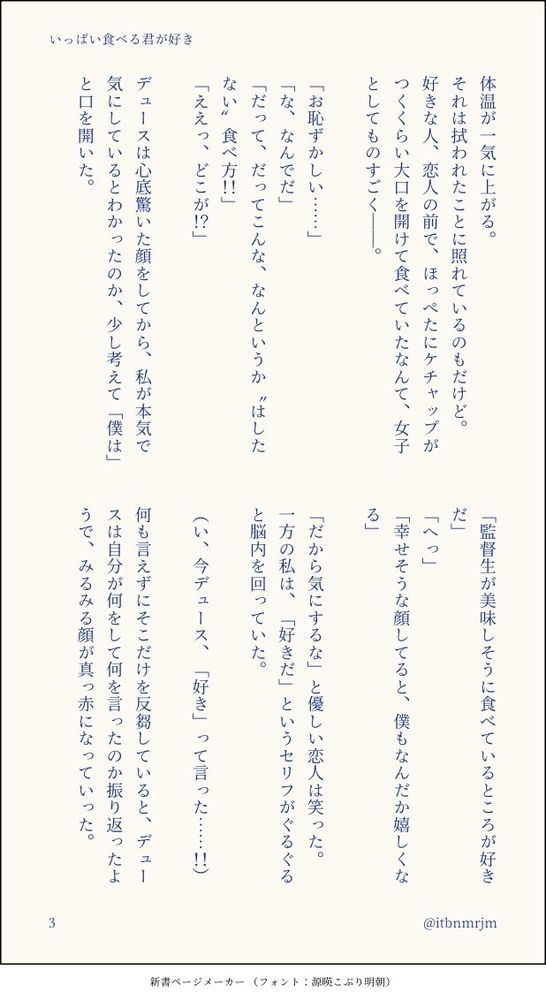 いっぱい食べる君が好き
体温が一気に上がる。
それは拭われたことに照れているのもだけど。
好きな人、恋人の前で、ほっぺたにケチャップが
つくくらい大口を開けて食べていたなんて、女子
としてものすごく――。
「お恥ずかしい……」
「な、なんでだ」
「だって、だってこんな、なんというか〝はした
ない〟食べ方!!」
「ええっ、どこが!?」
デュースは心底驚いた顔をしてから、私が本気で
気にしているとわかったのか、少し考えて「僕は」
と口を開いた。
「監督生が美味しそうに食べているところが好き
だ」
「へっ」
「幸せそうな顔してると、僕もなんだか嬉しくな
る」
「だから気にするな」と優しい恋人は笑った。
一方の私は、「好きだ」というセリフがぐるぐる
と脳内を回っていた。
(い、今デュース、「好き」って言った……!!)
何も言えずにそこだけを反芻していると、デュー
スは自分が何をして何を言ったのか振り返ったよ
うで、みるみる顔が真っ赤になっていった。
3
@itbnmrjm
新書ページメーカー（フォント：源暎こぶり明朝）